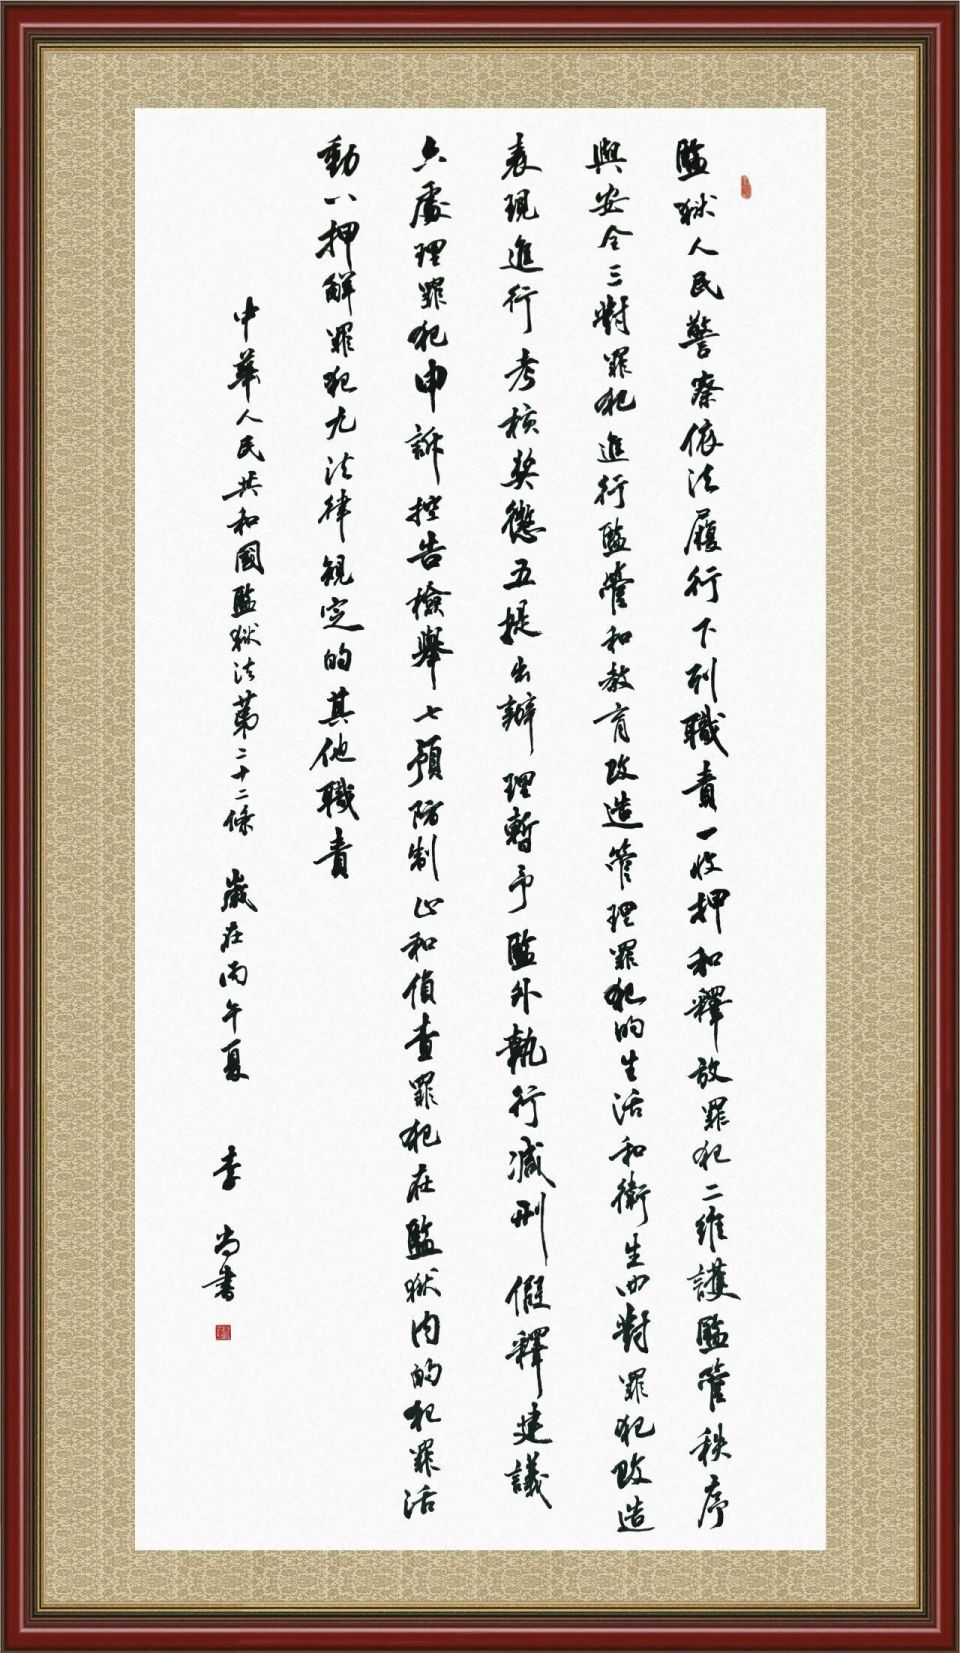 監獄人民警察依法履行下列職責一收押和釋放罪犯二維護監管秩序
與安全三對罪犯進行監管和教育改造管理罪犯的生活和衛生四對罪犯改造
表現進行考核奬懲五提出辦理暫予監外執行減刑假釋建議
六處理罪犯申訴控告檢舉七預防制止和偵查罪犯在監獄内的犯罪活
動八押解罪犯九法律規定的其他職責
中華人民共和國監獄法第二十二條 歲在丙午夏 李尚書